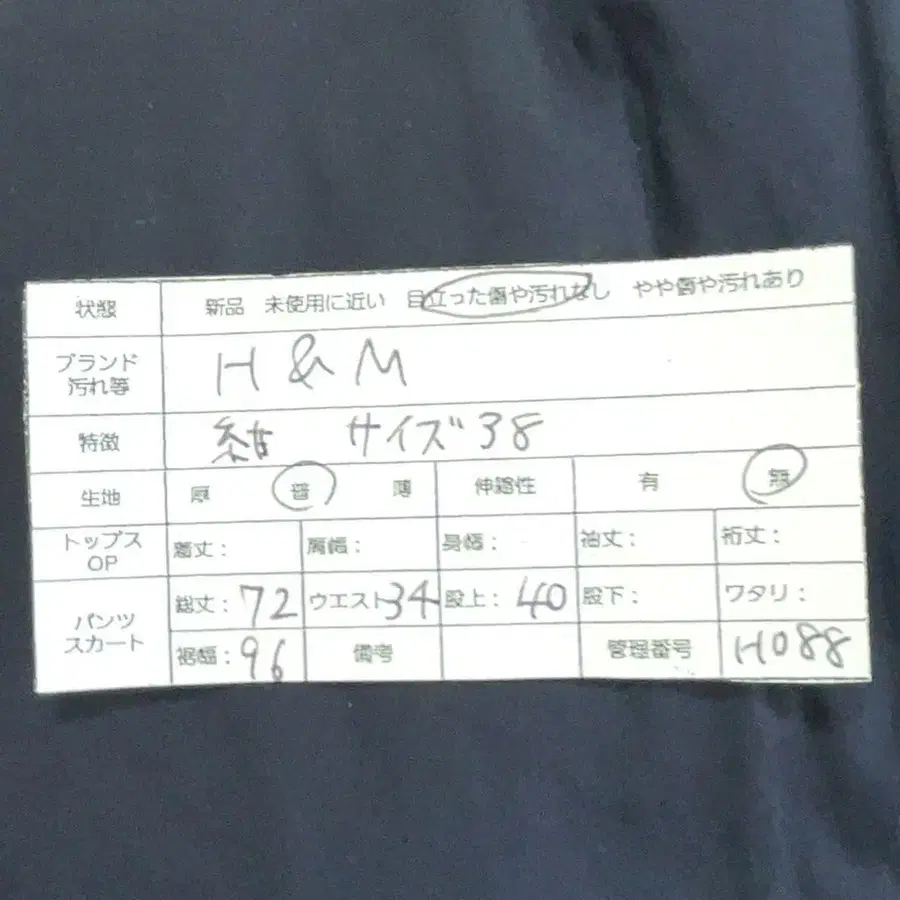 状態 新品 未使用に近い 目立った傷や汚れなし やや傷や汚れあり
ブランド 汚れ等 H & M
特徴 紺 サイズ38
生地 厚 普 薄 伸縮性 有 無
トップス OP 着丈: 肩幅: 身幅: 袖丈: 裄丈:
パンツ スカート 総丈: 72 ウエスト 34 股上: 40 股下: ワタリ:
裾幅: 96 備考 管理番号 H088